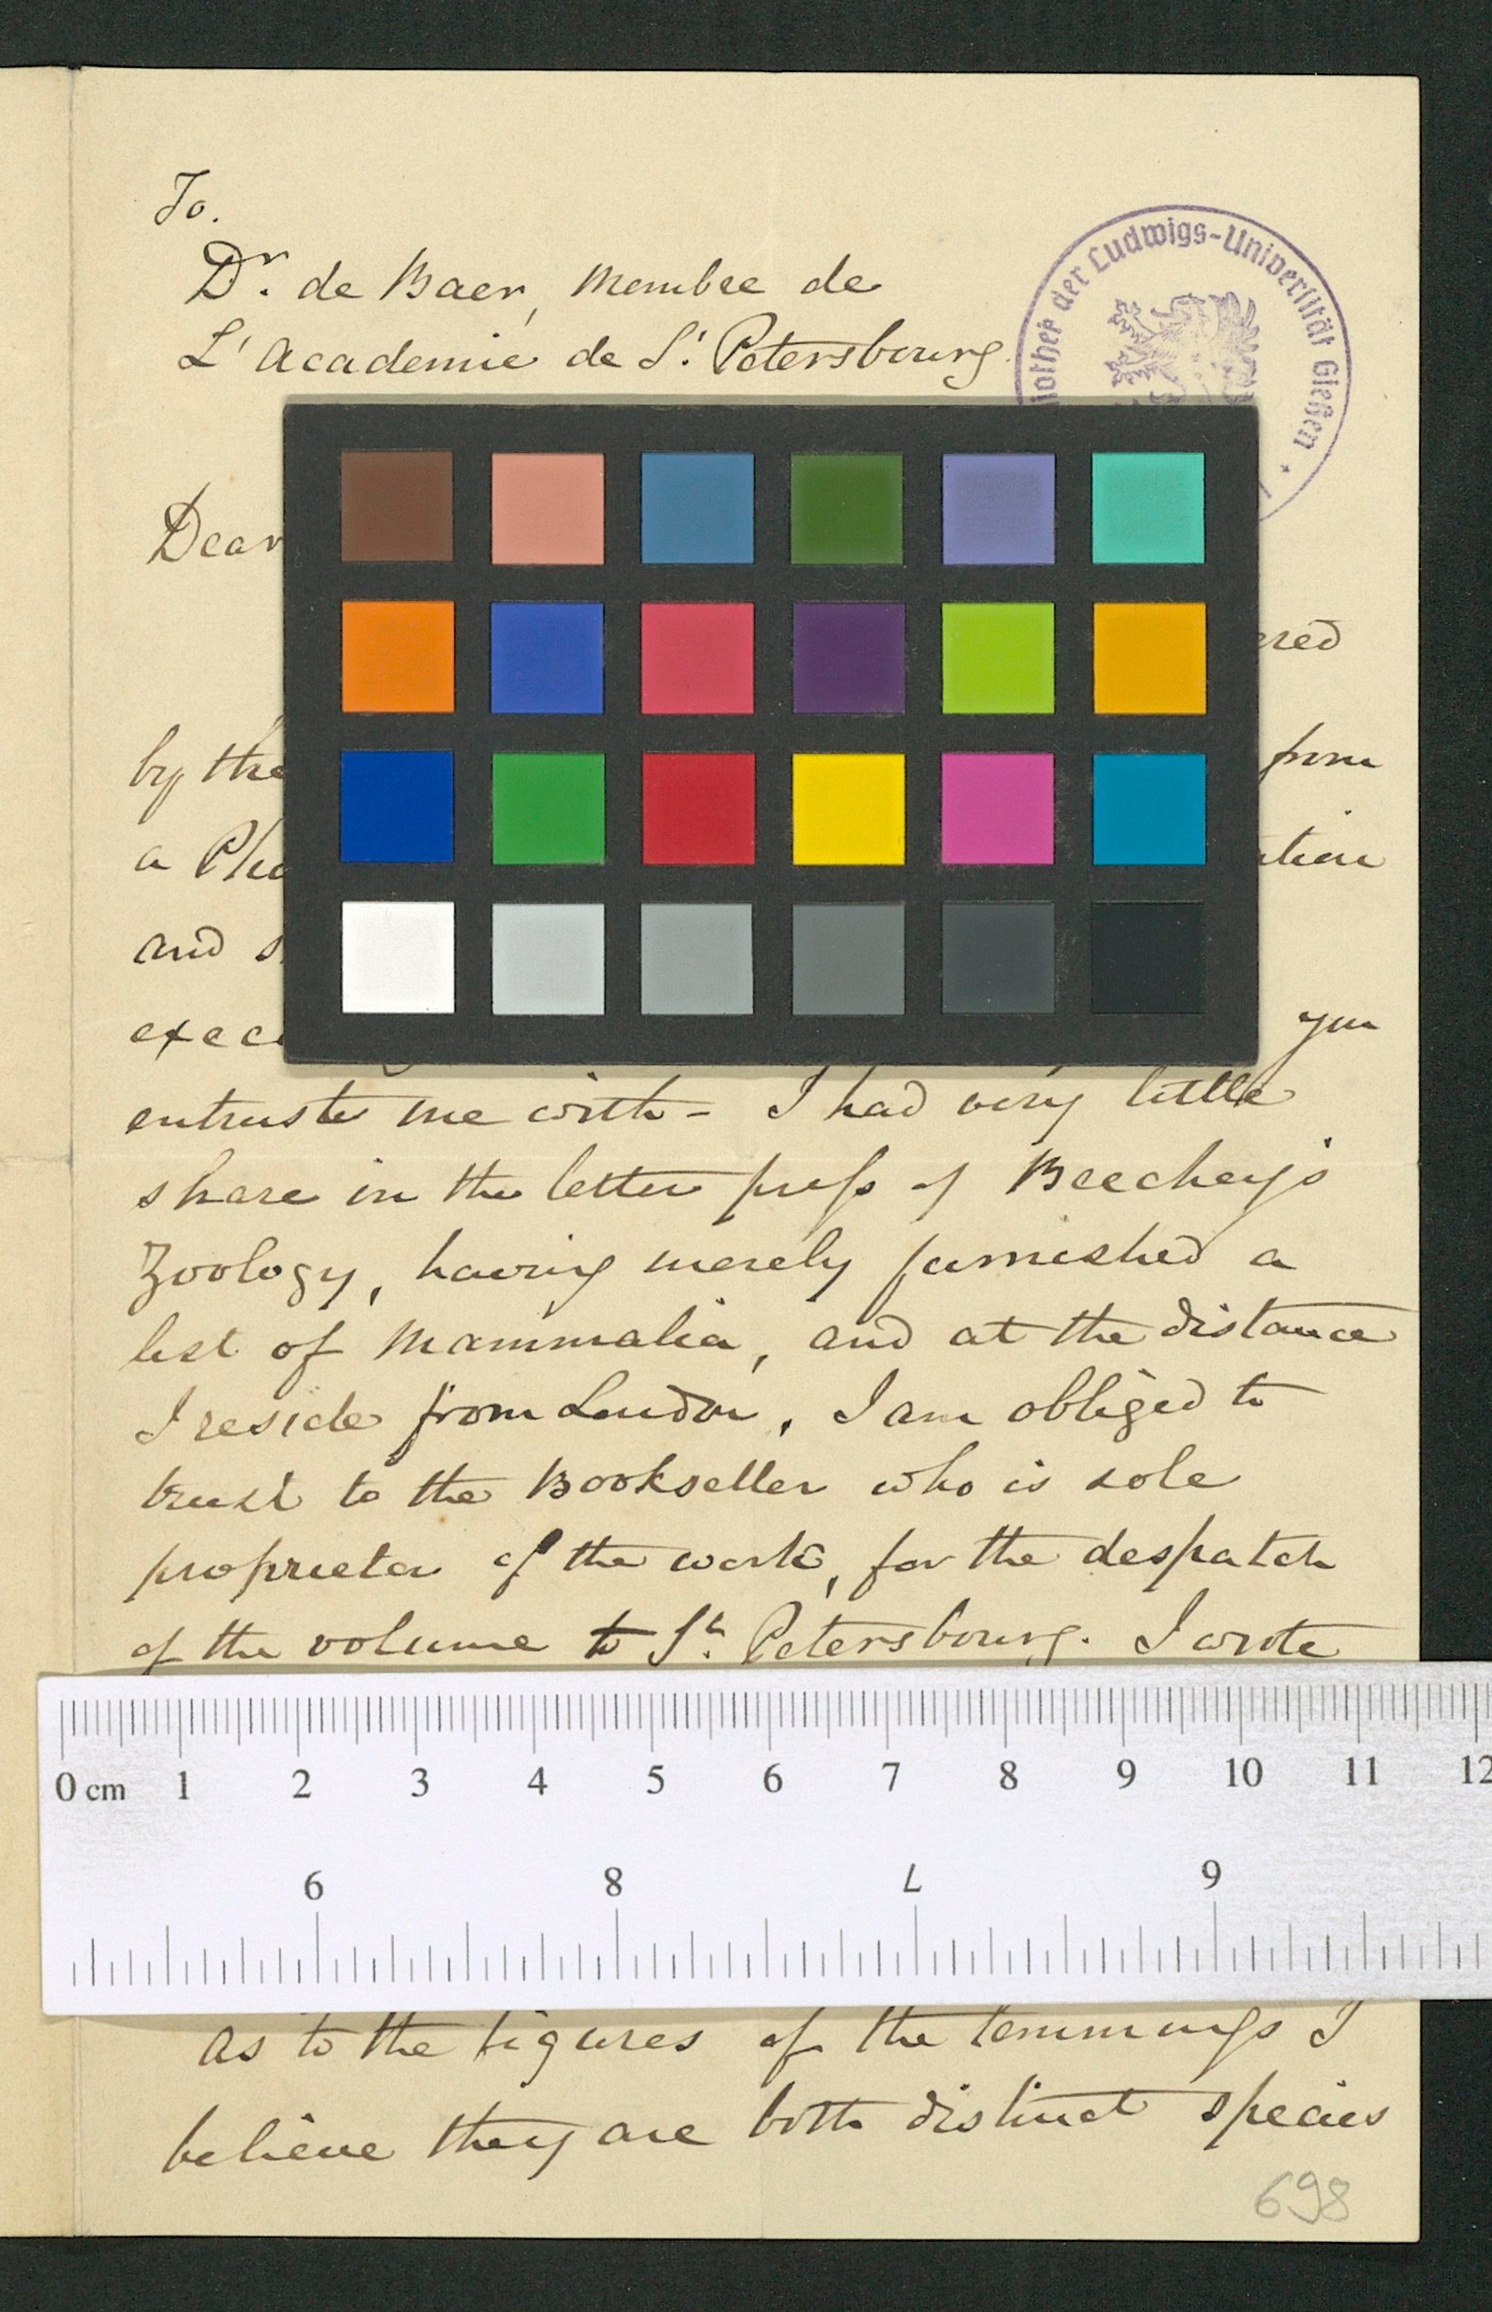 To.
Dr. de Baer, Membre de
L'Academie de St. Petersbourg.
iothek der Ludwigs-Universität Gießen
Dear
ered
by the from
a Pho ation
and s
exec you
entruste me with - I had very little
share in the letter press of Beechey's
Zoology, having merely furnished a
list of Mammalia, and at the distance
I reside from London, I am obliged to
trust to the Bookseller who is sole
proprietor of the work, for the despatch
of the volume to St. Petersbourg. I wrote
0 cm 1 2 3 4 5 6 7 8 9 10 11 12
6 8 L 9
as to the figures of the Lemmings I
believe they are both distinct species
698